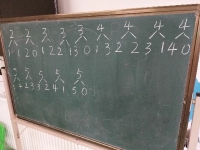 2 2 3 3 3 4 4 4 4
1 1 2 0 1 2 2 1 3 0 1 3 2 2 3 1 4 0
5 5 5 5 5
1 4 2 3 3 2 4 1 5 0